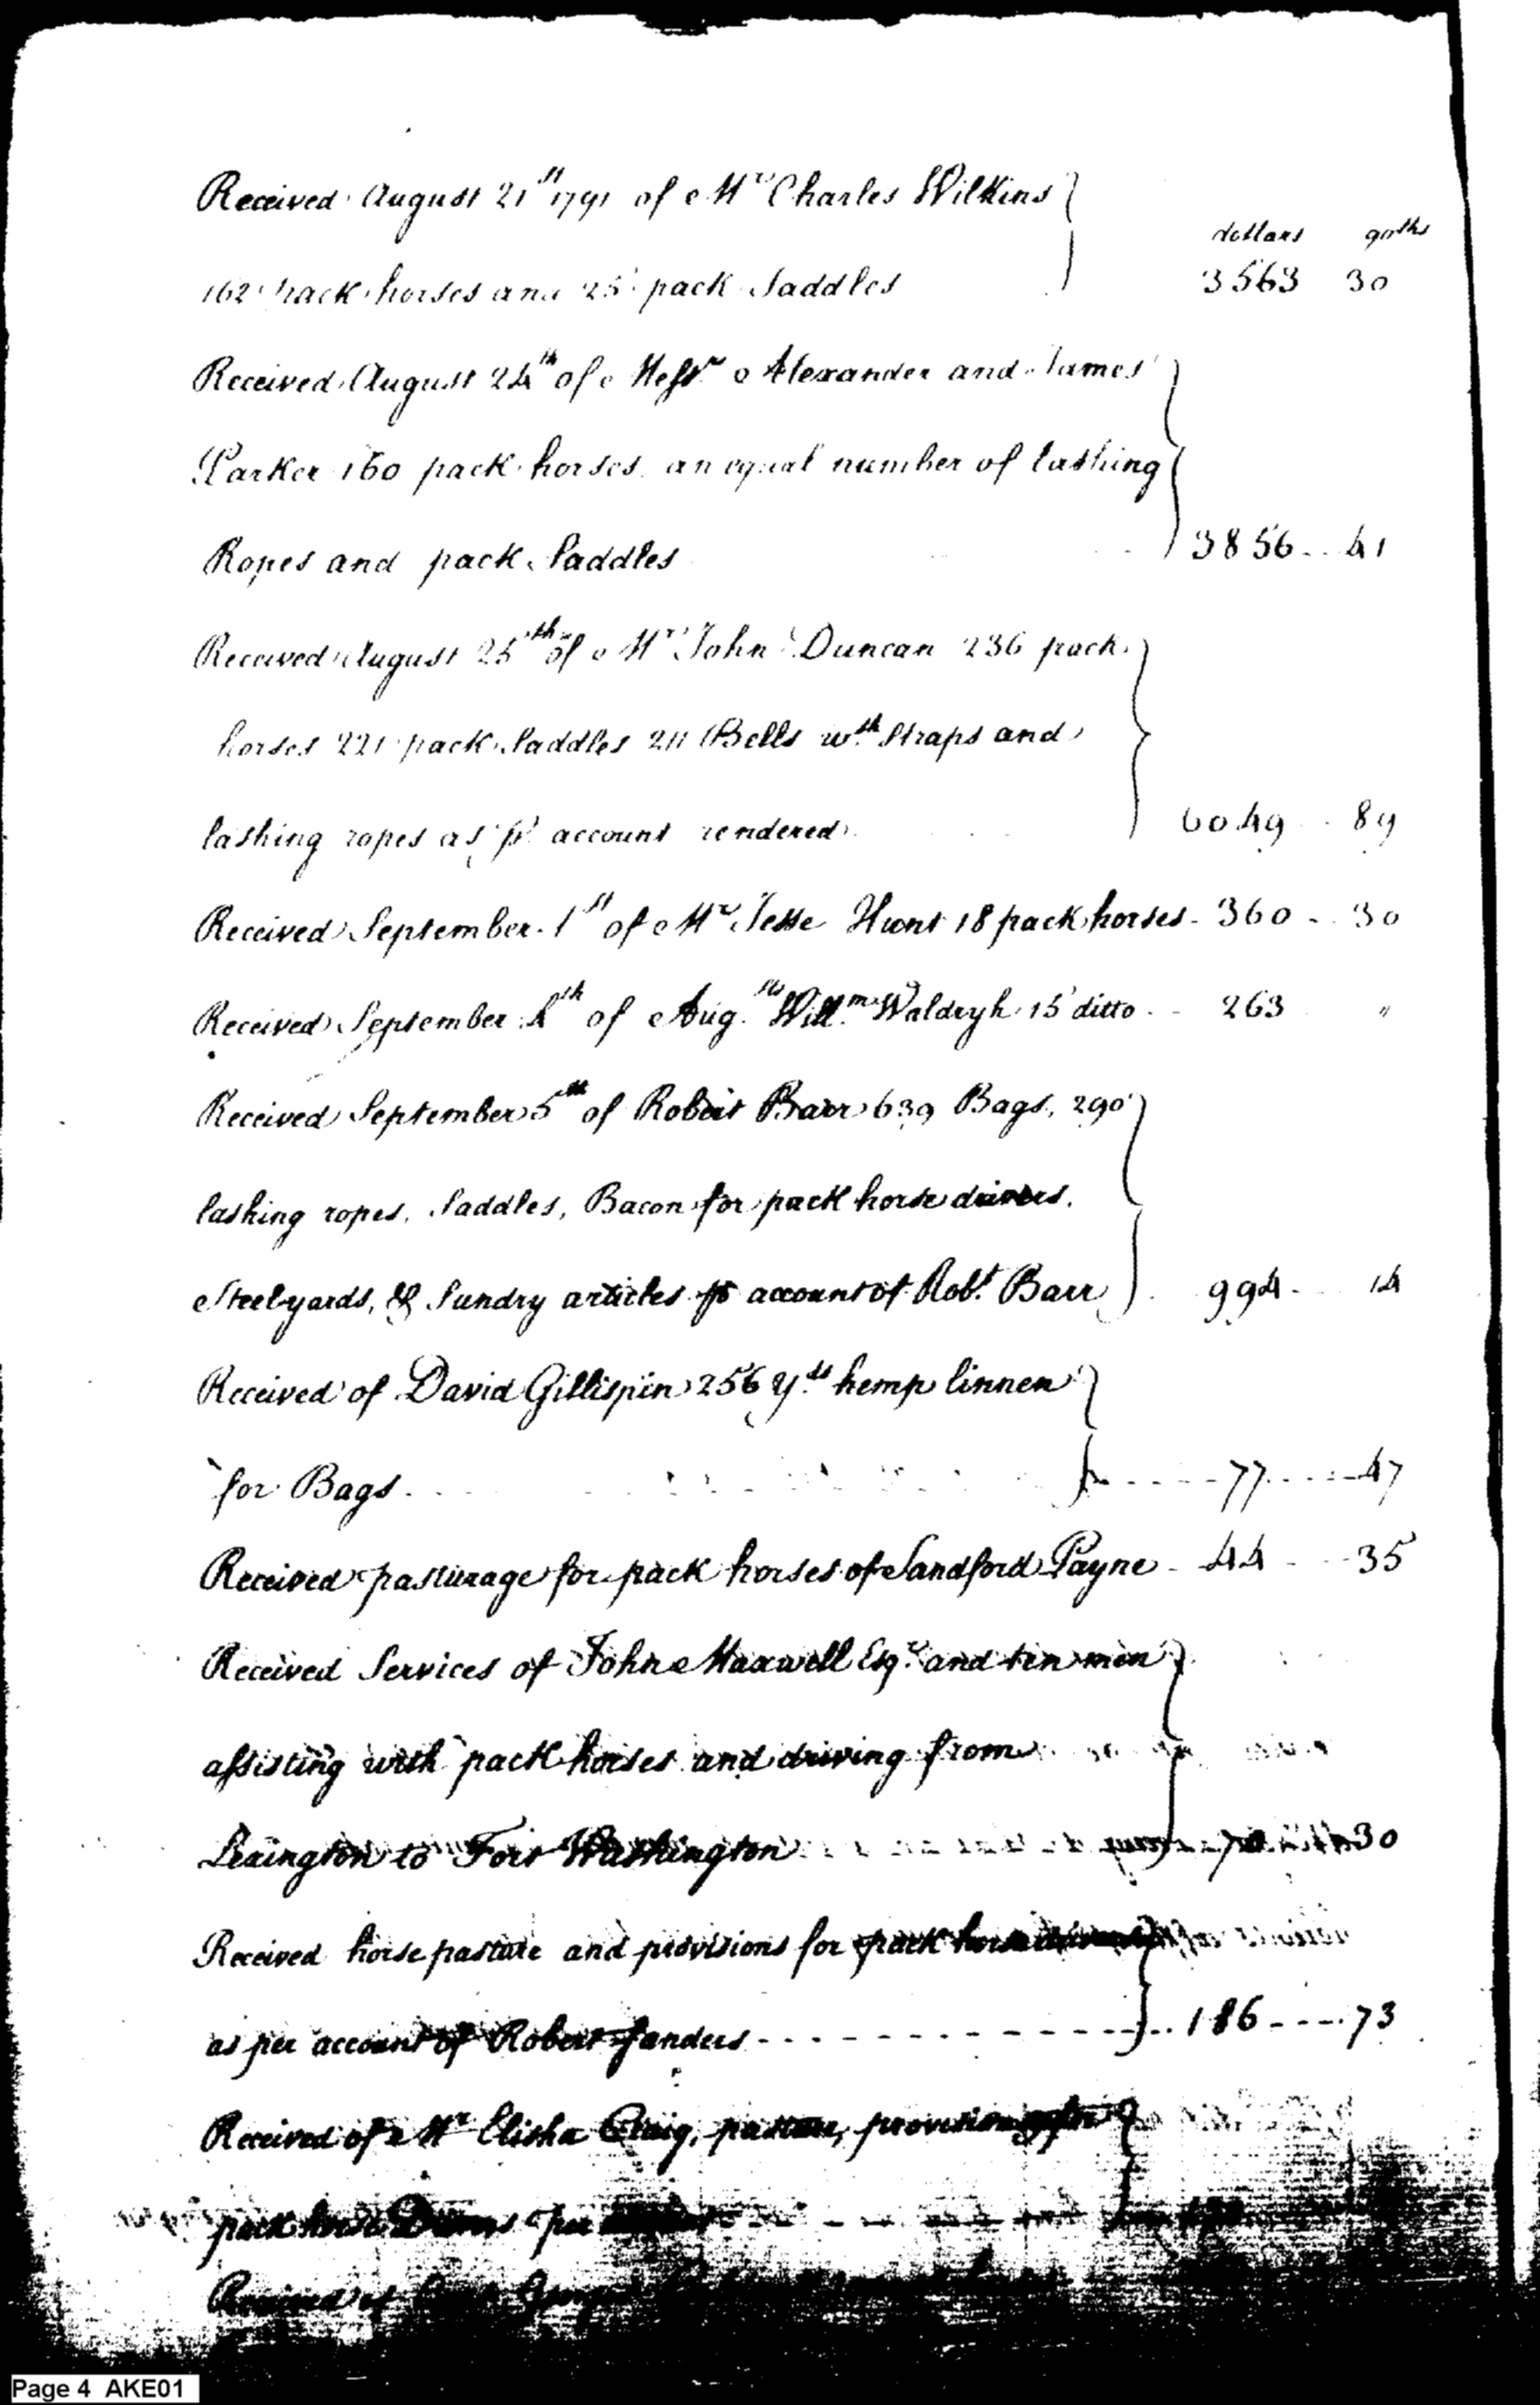 Received August 21st 1791 of Mr Charles Wilkins
dollars 90ths
162 pack horses and 25 pack Saddles 3563 30
Received August 24th of Messrs Alexander and James
Parker 160 pack horses an equal number of lashing
Ropes and pack Saddles 3856 41
Received August 25th of Mr John Duncan 236 pack
horses 221 pack Saddles 211 Bells wth Straps and
lashing ropes as pr account rendered 6049 89
Received September 1st of Mr Jesse Hunt 18 pack horses 360 30
Received September 4th of Aug.sts Will.m 15 ditto 263 "
Received September 5th of Robert Barr 639 Bags, 290
lashing ropes, Saddles, Bacon for pack horse drivers,
Steelyards, & Sundry articles pr account of Robt Barr 994 14
Received of David Gillispin 256 yds hemp linnen
for Bags 77 47
Received pasturage for pack horses of Sandford Payne 44 35
Received Services of John Maxwell Esqr and ten men
assisting with pack horses and driving from
Lexington to Fort Washington 30
Received horse pasture and provisions for pack horse drivers
as per account of Robert Sanders 186 73
Received of Mr Elisha Craig, pasture, provisions for
pack horse per
Received of
Page 4 AKE01